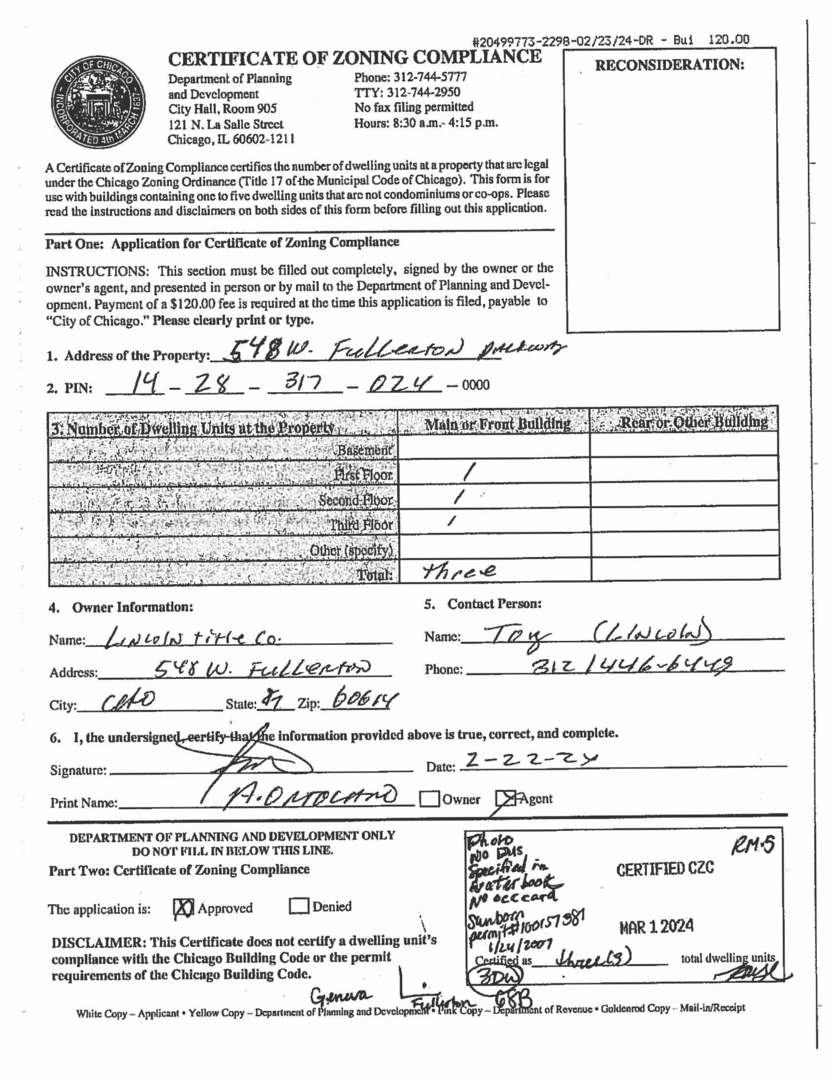 #20499773-2298-02/23/24-DR - Bui 120.00
CERTIFICATE OF ZONING COMPLIANCE
RECONSIDERATION:
CITY OF CHICAGO
INCORPORATED 4th MARCH 1837
Department of Planning
and Development
City Hall, Room 905
121 N. La Salle Street
Chicago, IL 60602-1211
Phone: 312-744-5777
TTY: 312-744-2950
No fax filing permitted
Hours: 8:30 a.m.- 4:15 p.m.
A Certificate of Zoning Compliance certifies the number of dwelling units at a property that are legal
under the Chicago Zoning Ordinance (Title 17 of the Municipal Code of Chicago). This form is for
use with buildings containing one to five dwelling units that are not condominiums or co-ops. Please
read the instructions and disclaimers on both sides of this form before filling out this application.
Part One: Application for Certificate of Zoning Compliance
INSTRUCTIONS: This section must be filled out completely, signed by the owner or the
owner's agent, and presented in person or by mail to the Department of Planning and Devel-
opment. Payment of a $120.00 fee is required at the time this application is filed, payable to
"City of Chicago." Please clearly print or type.
1. Address of the Property: 548 W. Fullerton parkway
2. PIN: 14 - 28 - 317 - 024 - 0000
3. Number of Dwelling Units at the Property Main or Front Building Rear or Other Building
Basement
First Floor 1
Second Floor 1
Third Floor 1
Other (specify)
Total: three
4. Owner Information:
Name: Lincoln title Co.
Address: 548 W. Fullerton
City: State: Zip: 60614
5. Contact Person:
Name: Tony (Lincoln)
Phone: 312 / 446-6449
6. I, the undersigned, certify that the information provided above is true, correct, and complete.
Signature: Date: 2-22-24
Print Name: Owner Agent
DEPARTMENT OF PLANNING AND DEVELOPMENT ONLY
DO NOT FILL IN BELOW THIS LINE.
Part Two: Certificate of Zoning Compliance
The application is: X Approved Denied
DISCLAIMER: This Certificate does not certify a dwelling unit's
compliance with the Chicago Building Code or the permit
requirements of the Chicago Building Code.
Photo
NO DUs
Specified in
water book
No occ card
Sunborn
permit# 100157381
1/24/2007
RM-5
CERTIFIED CZC
MAR 1 2024
Certified as three(3) total dwelling units
3DU
Geneva
Fullerton
68B
White Copy – Applicant • Yellow Copy – Department of Planning and Development • Pink Copy – Department of Revenue • Goldenrod Copy – Mail-in/Receipt